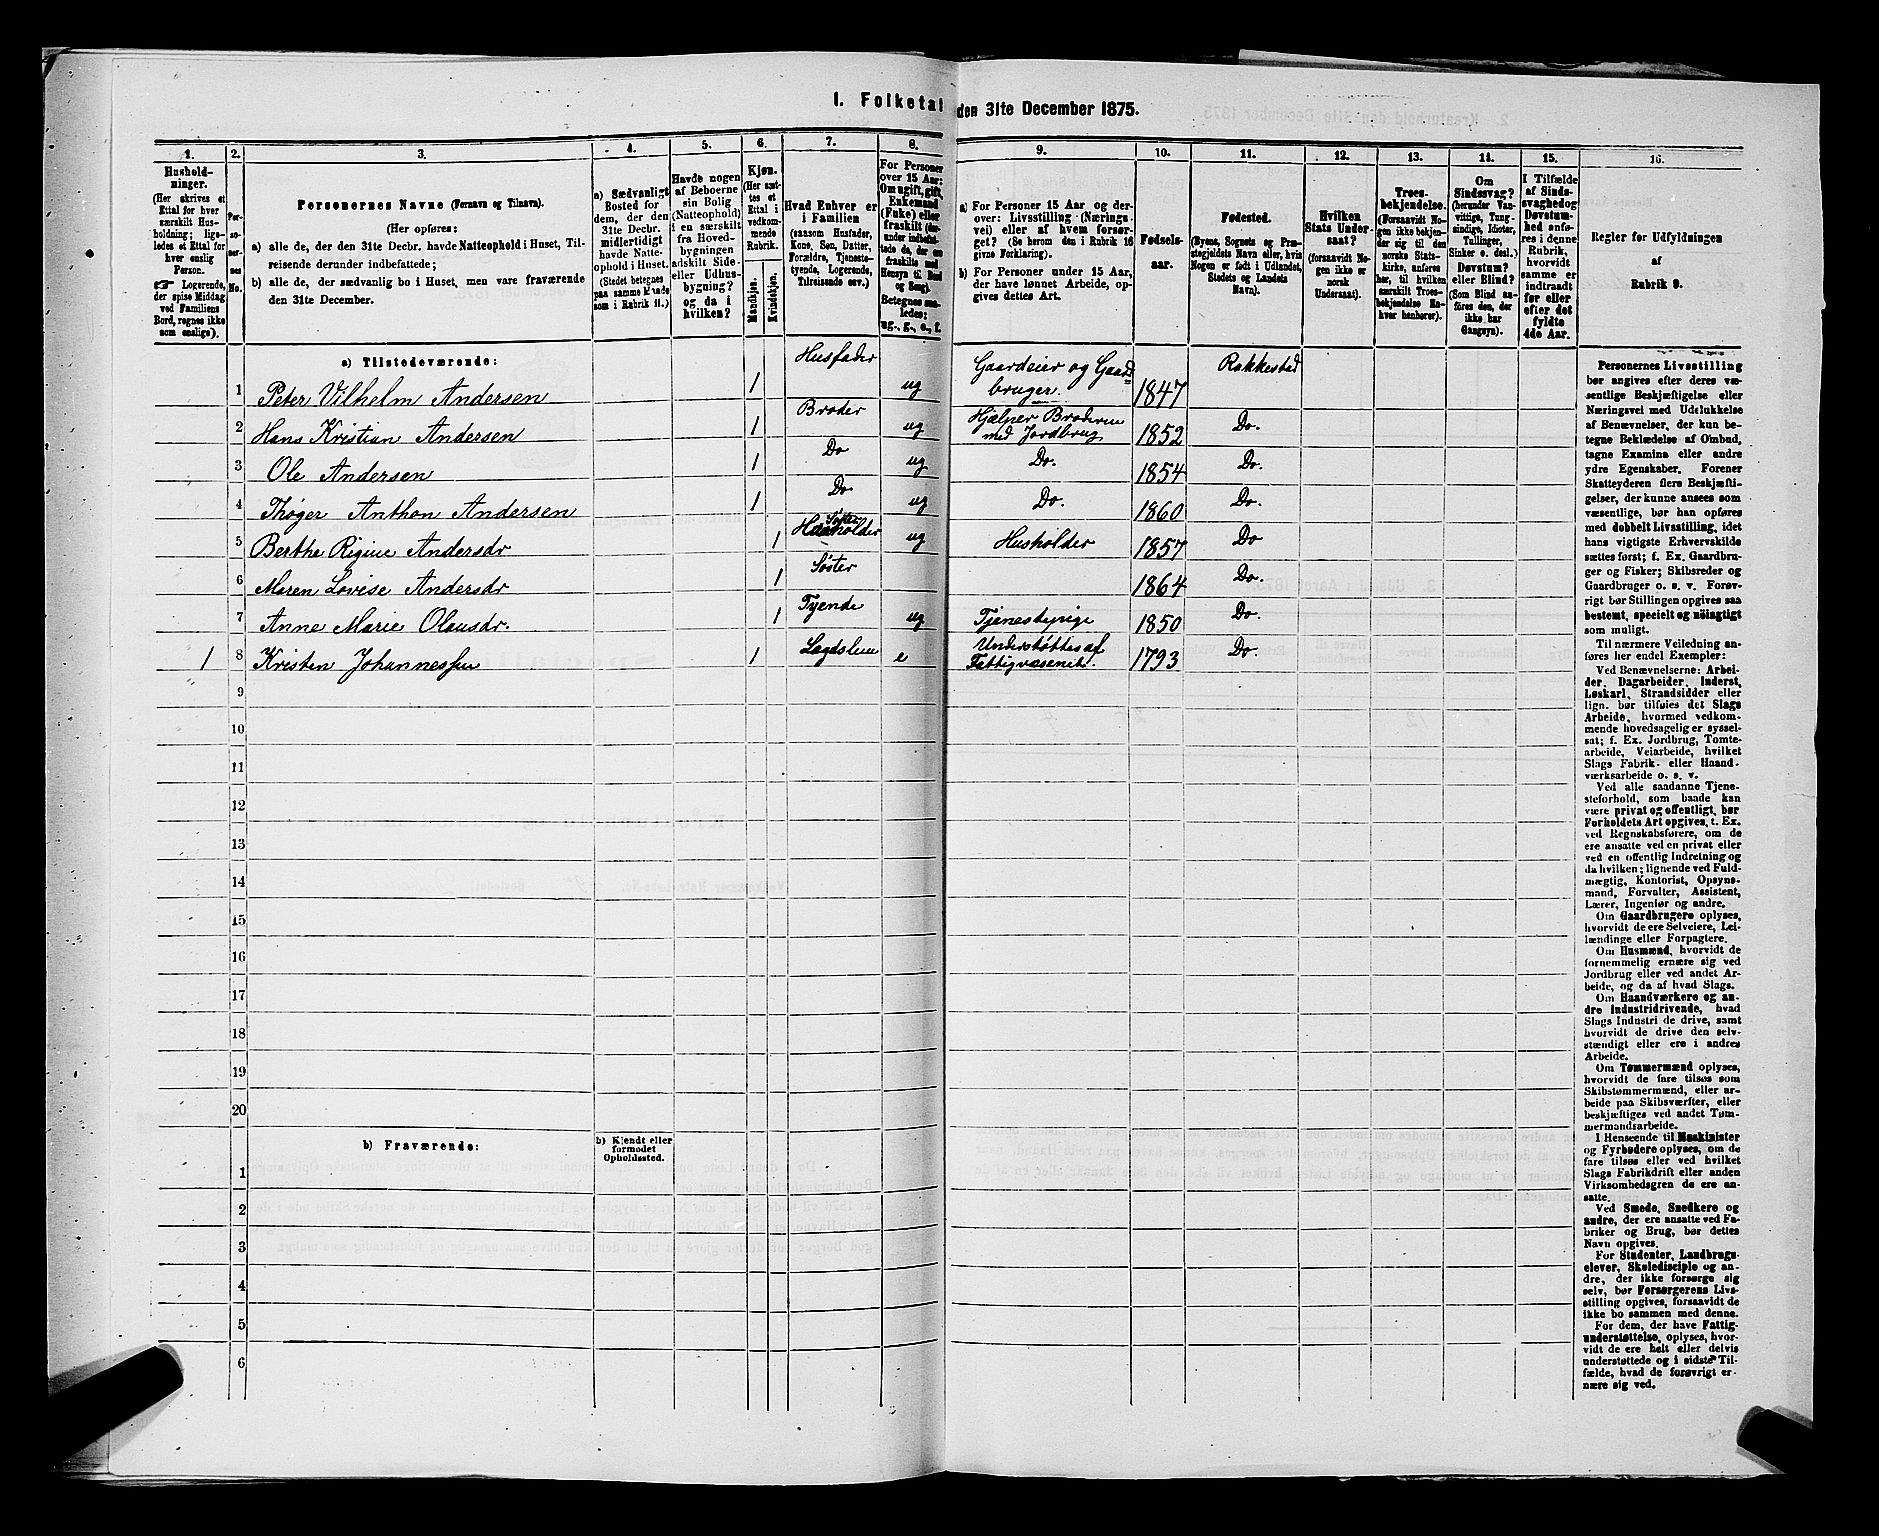 1. Folketal den 31te December 1875.
1. 2. 3. 4. 5. 6. 7. 8. 9. 10. 11. 12. 13. 14. 15. 16.
Hushold-
ninger.
(Her skrives et
Ettal for hver
særskilt Hus-
holdning; lige-
ledes et Ettal for
hver enslig
Person.
☞ Logerende,
der spise Middag
ved Familiens
Bord, regnes ikke
som enslige).
Per-
so-
ner-
nes
No.
Personernes Navne (Fornavn og Tilnavn).
(Her opføres:
a) alle de, der den 31te Decbr. havde Natteophold i Huset, Til-
reisende derunder indbefattede;
b) alle de, der sædvanlig bo i Huset, men vare fraværende
den 31te December.
a) Sædvanligt
Bosted for
dem, der den
31te Decbr.
midlertidigt
havde Natte-
ophold i Huset.
(Stedet betegnes
paa samme Maade
som i Rubrik 11.)
Havde nogen
af Beboerne
sin Bolig
(Natteophold)
i en særskilt
fra Hoved-
bygningen
adskilt Side-
eller Udhus-
bygning?
og da i
hvilken?
Kjøn.
(Her sæt-
tes et
Ettal i
vedkom-
mende
Rubrik.
Mandkjøn.
Kvindekjøn.
Hvad Enhver er
i Familien
(saasom Husfader,
Kone, Søn, Datter,
Forældre, Tjeneste-
tyende, Logerende,
Tilreisende osv.)
For Personer
over 15 Aar:
Om ugift, gift,
Enkemand
(Enke) eller
fraskilt (der-
under indbefat-
tede de, der ere
fraskilte med
Hensyn til Bord
og Seng).
Betegnes saa-
ledes:
ug., g., e., f.
a) For Personer 15 Aar og der-
over: Livsstilling (Nærings-
vei) eller af hvem forsør-
get? (Se herom den i Rubrik 16
givne Forklaring).
b) For Personer under 15 Aar,
der have lønnet Arbeide, op-
gives dettes Art.
Fødsels-
aar.
Fødested.
(Byens, Sognets og Præ-
stegjeldets Navn eller, hvis
Nogen er født i Udlandet,
Stedets og Landets
Navn).
Hvilken
Stats Under-
saat?
(forsaavidt No-
gen ikke er
norsk
Undersaat).
Troes-
bekjendelse.
(Forsaavidt No-
gen ikke bekjen-
der sig til den
norske Stats-
kirke, anføres
her, til hvilken
særskilt Troes-
bekjendelse En-
hver henhører).
Om
Sindssvag?
(herunder Van-
vittige, Tung-
sindige, Idioter,
Tullinger,
Sinker o. desl.)
Døvstum?
eller Blind?
(Som Blind an-
føres den, der
ikke har
Gangsyn).
I Tilfælde
af Sinds-
svaghed og
Døvstum-
hed anfø-
res i denne
Rubrik,
hvorvidt
samme er
indtraadt
før eller
efter det
fyldte
4de Aar.
Regler for Udfyldningen
af
Rubrik 9.
a) Tilstedeværende:
1 Peter Vilhelm Andersen 1 Husfader ug Gaardeier og Gaard
bruger. 1847 Rakkestad
2 Hans Kristian Andersen 1 Broder ug Hjælper Broderen
med Jordbrug 1852 Do.
3 Ole Andersen 1 Do ug Do. 1854 Do.
4 Thøger Anthon Andersen 1 Do ug Do. 1860 Do.
Søster
5 Berthe Rigine Andersdr 1 Husholder ug Husholder 1857 Do
6 Maren Lovise Andersdr 1 Søster 1864 Do.
7 Anne Marie Olausdr. 1 Tyende ug Tjenestepige 1850 Do.
1 8 Kristen Johannessen 1 Lægdslem e Understøttes af
Fattigvæsenet. 1793 Do.
9
10
11
12
13
14
15
16
17
18
19
20
b) Fraværende:
b) Kjendt eller
formodet
Opholdssted.
1
2
3
4
5
6
Personernes Livsstilling
bør angives efter deres væ-
sentlige Beskjæftigelse eller
Næringsvei med Udelukkelse
af Benævnelser, der kun be-
tegne Beklædelse af Ombud,
tagne Examina eller andre
ydre Egenskaber. Forener
Skatteyderen flere Beskjæfti-
gelser, der kunne ansees som
væsentlige, bør han opføres
med dobbelt Livsstilling, idet
hans vigtigste Erhvervskilde
sættes først; f. Ex. Gaardbru-
ger og Fisker; Skibsreder og
Gaardbruger o. s. v. Forøv-
rigt bør Stillingen opgives saa
bestemt, specielt og nøiagtigt
som muligt.
Til nærmere Veiledning an-
føres her endel Exempler:
Ved Benævnelserne: Arbei-
der, Dagarbeider, Inderst,
Løskarl, Strandsidder eller
lign. bør tilføies det Slags
Arbeide, hvormed vedkom-
mende hovedsagelig er syssel-
sat; f. Ex. Jordbrug, Tomte-
arbeide, Veiarbeide, hvilket
Slags Fabrik- eller Haand-
værksarbeide o. s. v.
Ved alle saadanne Tjene-
steforhold, som baade kan
være privat og offentligt, bør
Forholdets Art opgives, t. Ex.
ved Regnskabsførere, om de
ere ansatte ved en privat eller
ved en offentlig Indretning og
da hvilken; lignende ved Fuld-
mægtig, Kontorist, Opsyns-
mand, Forvalter, Assistent,
Lærer, Ingeniør og andre.
Om Gaardbrugere oplyses,
hvorvidt de ere Selveiere, Lei-
lændinge eller Forpagtere.
Om Husmænd, hvorvidt de
fornemmelig ernære sig ved
Jordbrug eller ved andet Ar-
beide, og da af hvad Slags.
Om Haandværkere og an-
dre Industridrivende, hvad
Slags Industri de drive, samt
hvorvidt de drive den selv-
stændigt eller ere i andres
Arbeide.
Om Tømmermænd oplyses,
hvorvidt de fare tilsøs som
Skibstømmermænd, eller ar-
beide paa Skibsværfter, eller
beskjæftiges ved andet Tøm-
mermandsarbeide.
I Henseende til Maskinister
og Fyrbødere oplyses, om de
fare tilsøs eller ved hvilket
Slags Fabrikdrift eller anden
Virksombedsgren de ere an-
satte.
Ved Smede, Snedkere og
andre, der ere ansatte ved Fa-
briker og Brug, bør dettes
Navn opgives.
For Studenter, Landbrugs-
elever, Skoledisciple og an-
dre, der ikke forsørge sig
selv, bør Forsørgerens Livs-
stilling opgives, forsaavidt de
ikke bo sammen med denne.
For dem, der have Fattig-
understøttelse, oplyses, hvor-
vidt de ere helt eller delvis
understøttede og i sidste Til-
fælde, hvad de forøvrigt er-
nære sig ved.